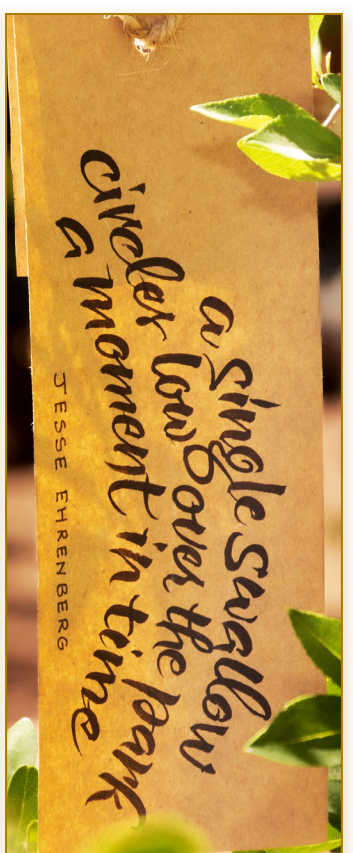 a single swallow
circles low over the park
a moment in time
JESSE EHRENBERG